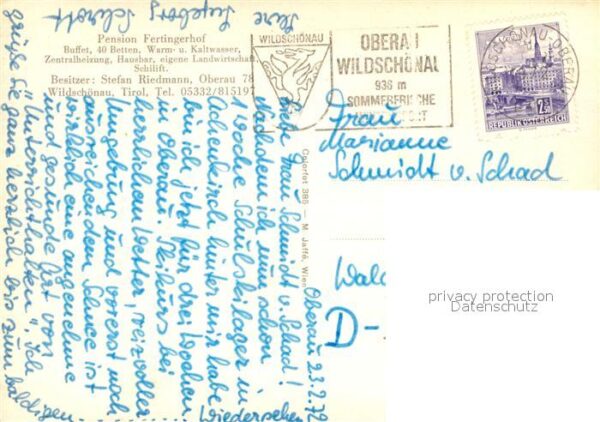 Pension Fertingerhof
Buffet, 40 Betten, Warm- u. Kaltwasser,
Zentralheizung, Hausbar, eigene Landwirtschaft
Schilift.
Besitzer: Stefan Riedmann, Oberau 78
Wildschönau, Tirol, Tel. 05332/815197
WILDSCHÖNAU
OBERAU
WILDSCHÖNAU
936 m
SOMMERFRISCHE
WILDSCHÖNAU-OBERAU
2S
REPUBLIK ÖSTERREICH
Colorfot 385 — M. Jaffé, Wien
Oberau 23.2.72
Liebe Frau Schmidt v. Schad!
Nachdem ich nun schon
1 Woche Schulskilager in
Achenkirch hinter mir habe,
bin ich jetzt für drei Wochen
in Oberau. Skikurs bei
herrlichem Wetter, reizvoller
Umgebung und vorerst noch
ausreichendem Schnee ist
wirklich eine angenehme
und gesunde Art von
"Unterrichthalten". Ich
grüße Sie ganz herzlich bis zum baldigen
Wiedersehen
Ihre
Ingeborg
Frau
Marianne
Schmidt v. Schad
Wald
D-
privacy protection
Datenschutz